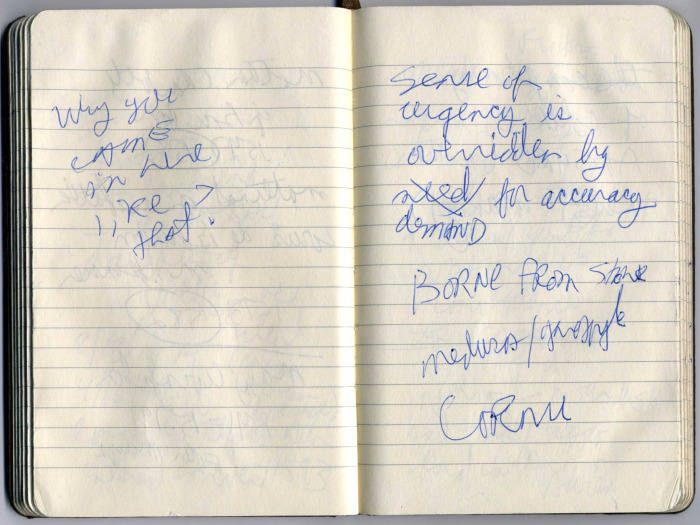 Why you
CAME
in here
like
that?
Sense of
urgency is
overridden by
need for accuracy
demAND
BORNE FROM Stone
medusa/
CORNU